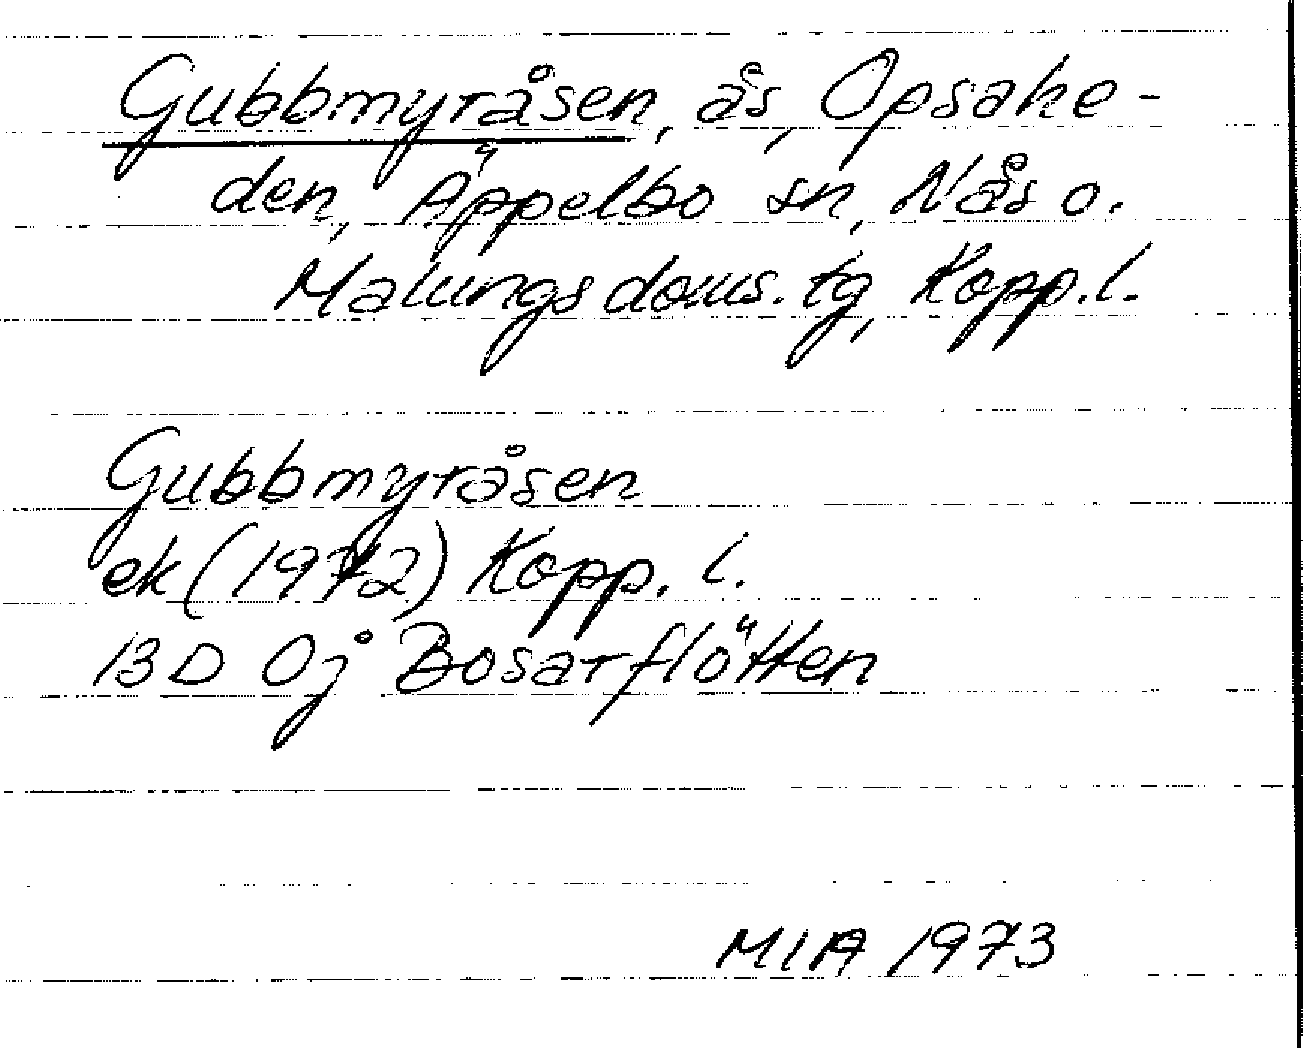 Gubbmyråsen, ås, Opsahe-
den, Äppelbo sn, Nås o.
Malungs doms. tg, Kopp. l.
Gubbmyråsen
ek (1972) Kopp. l.
13D 0j Bosarflötten
MIA 1973